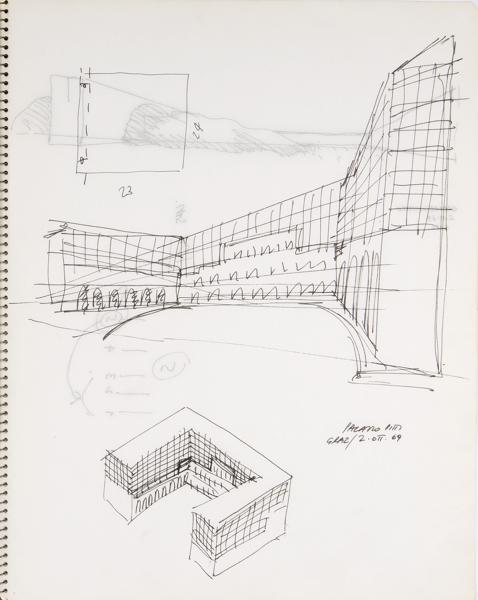 24
23
PALAZZO PITTI
GRAZ / 2. OTT. 69